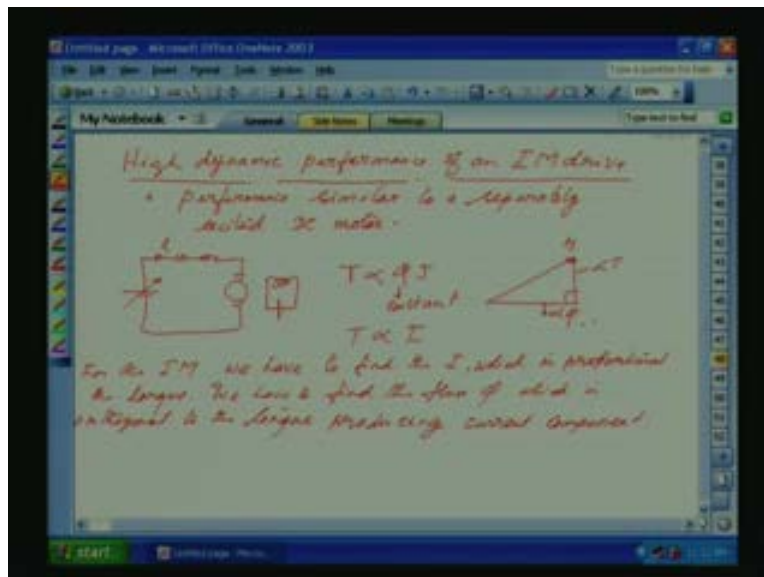 Untitled page - Microsoft Office OneNote 2003
File Edit View Insert Format Tools Window Help
Type a question for help
100%
My Notebook General Side Notes Meetings
Type text to find
High dynamic performance of an IM drive
performance similar to a separably
excited DC motor.
T ∝ φ I
constant
T ∝ I
For the IM we have to find the I, which is proportional
the torque. We have to find the flux φ which is
orthogonal to the torque producing current component.
start Untitled page - Micro...